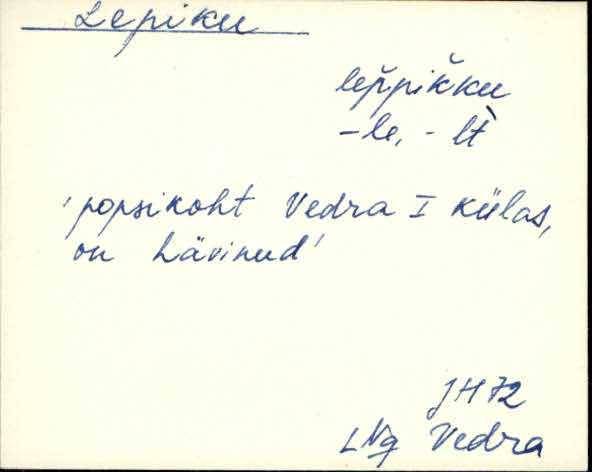 Lepiku
lep̆pik̆ku
-le, - lt̀
'popsikoht Vedra I külas,
on hävinud'
JH 72
LNg Vedra